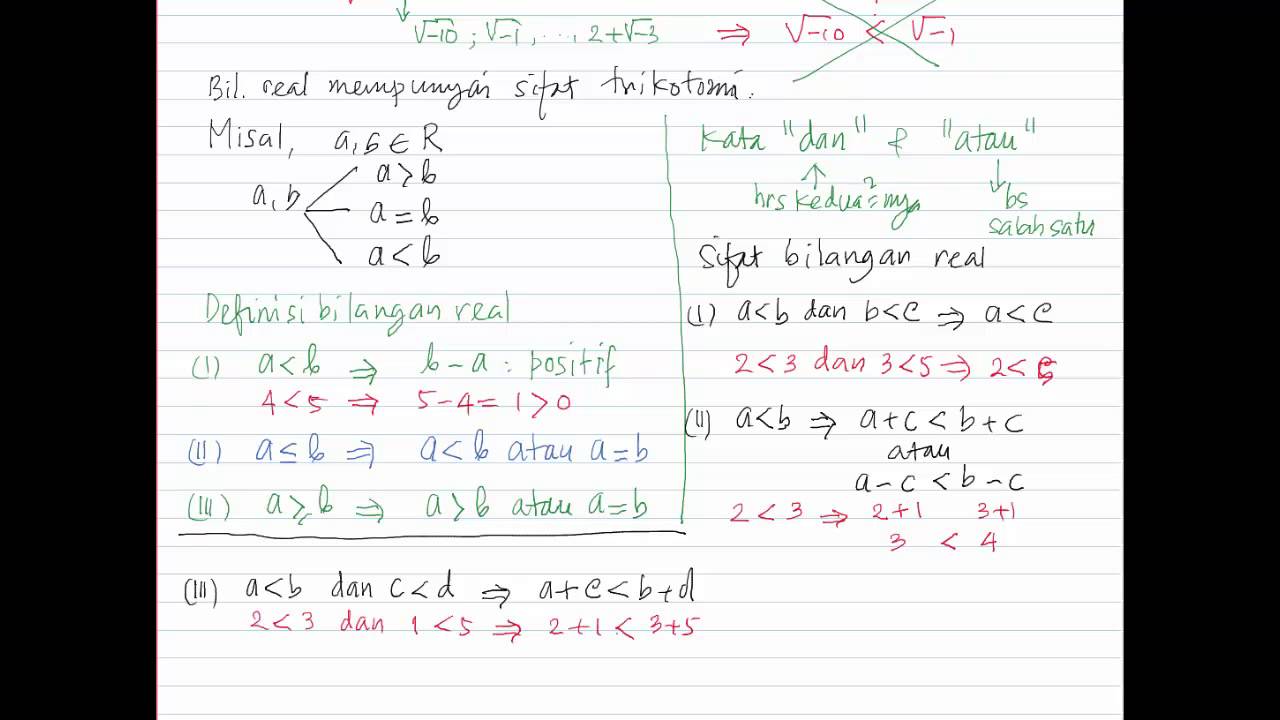 √-10 ; √-1 , ..., 2+√-3 ⇒ √-10 < √-1
Bil. real mempunyai sifat trikotomi.
Misal, a,b ∈ R
a,b
a > b
a = b
a < b
Definisi bilangan real
(I) a < b ⇒ b – a : positif
4 < 5 ⇒ 5 – 4 = 1 > 0
(II) a ≤ b ⇒ a < b atau a = b
(III) a ≥ b ⇒ a > b atau a = b
Kata "dan" & "atau"
hrs kedua²=nya
bs
salah satu
Sifat bilangan real
(I) a < b dan b < c ⇒ a < c
2 < 3 dan 3 < 5 ⇒ 2 < 5
(II) a < b ⇒ a + c < b + c
atau
a – c < b – c
2 < 3 ⇒ 2+1 3+1
3 < 4
(III) a < b dan c < d ⇒ a + c < b + d
2 < 3 dan 1 < 5 ⇒ 2+1 < 3+5